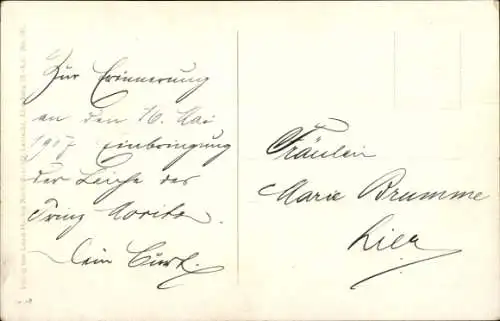 Zur Erinnerung
an den 16. Mai
1907 Einbringung
der Leiche des
Prinz Moritz.
Dein Curt.
Fräulein
Marie Brumme
hier